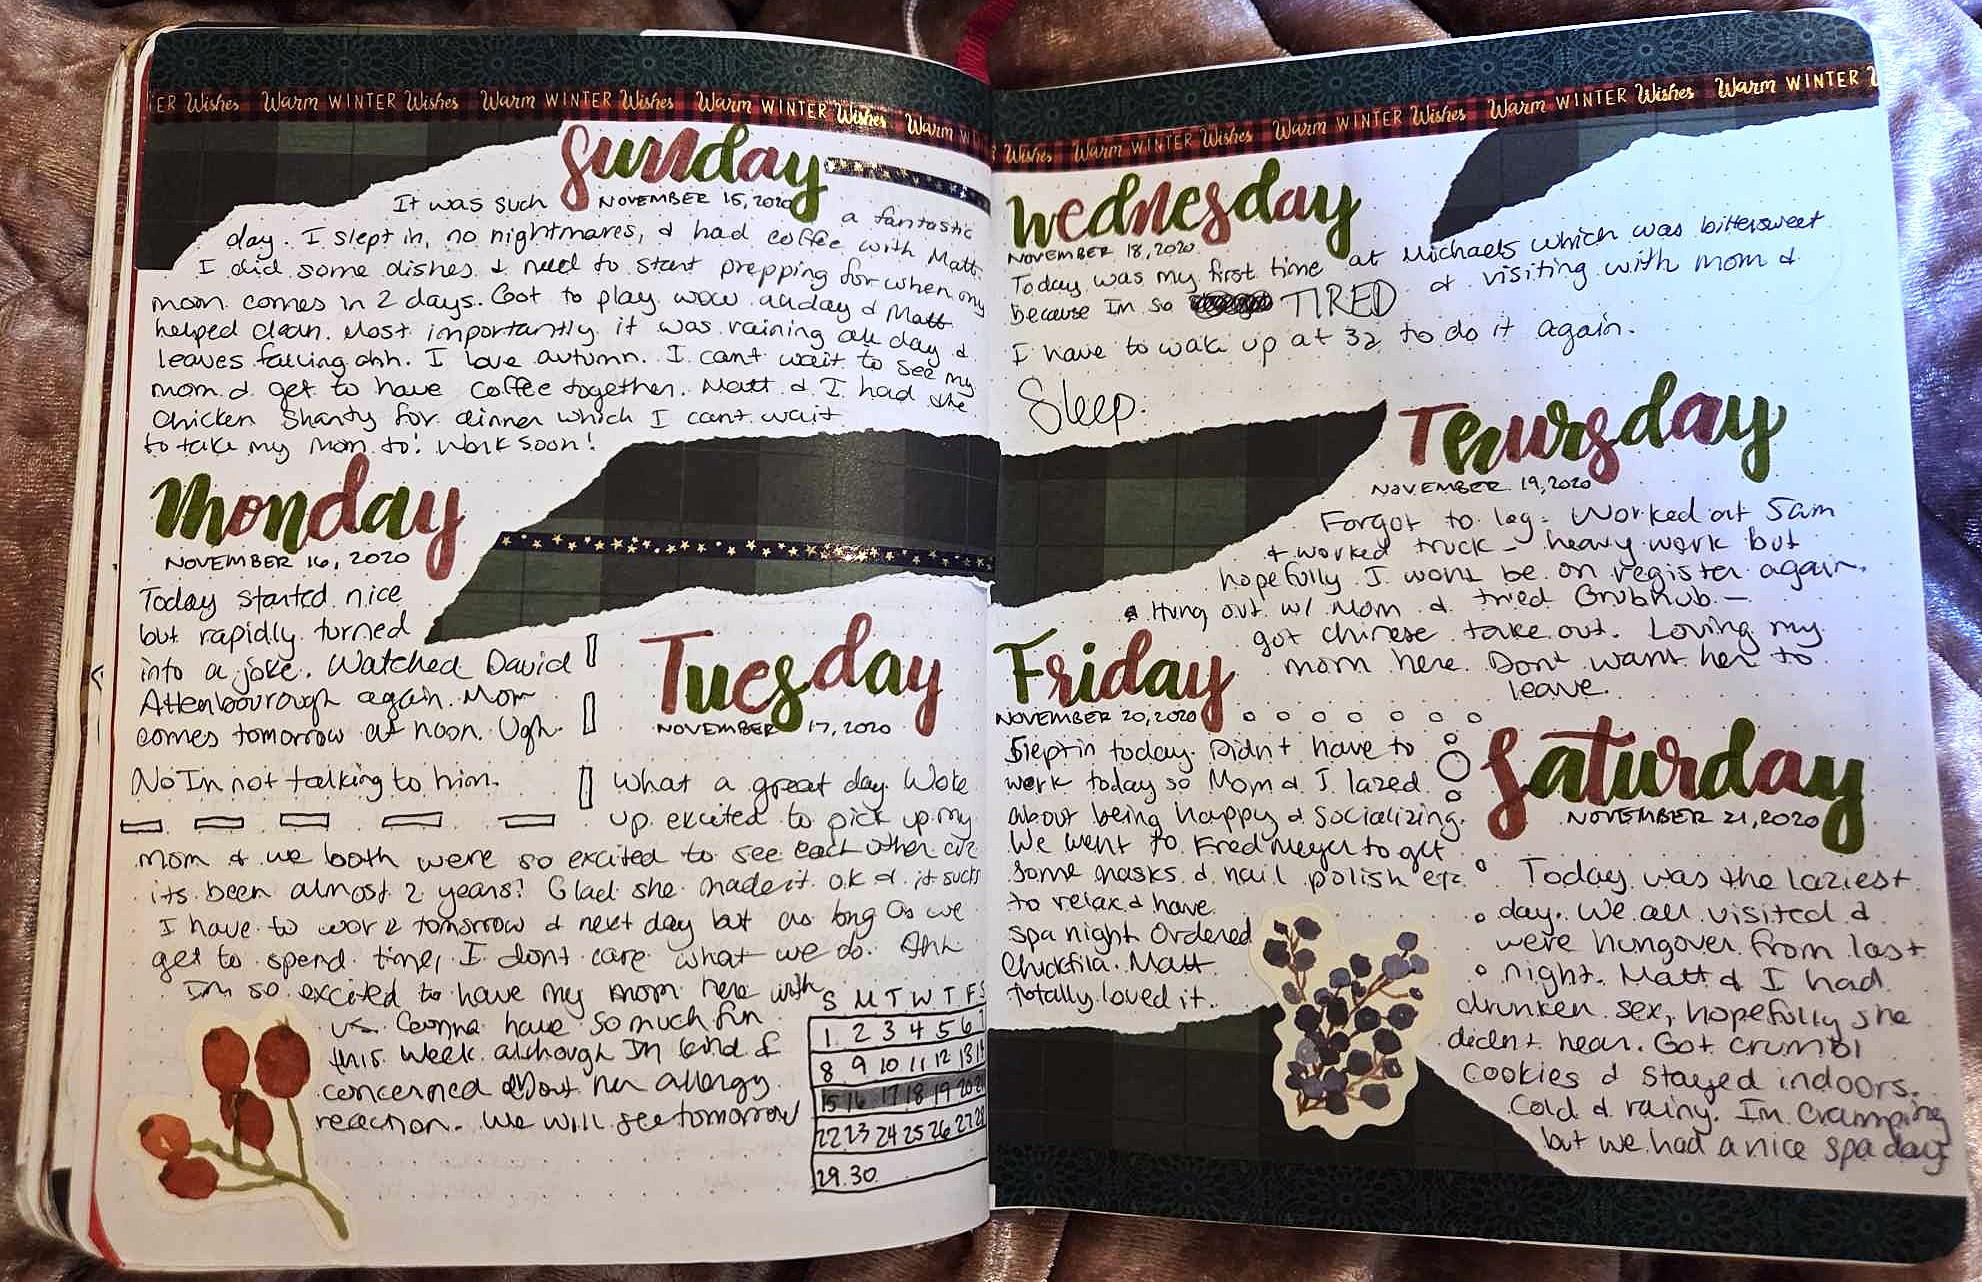 ER Wishes Warm WINTER Wishes Warm WINTER Wishes Warm WINTER Wishes Warm W
Sunday
NOVEMBER 15, 2020
It was such a fantastic
day. I slept in, no nightmares, & had coffee with Matt.
I did some dishes & need to start prepping for when my
mom comes in 2 days. Got to play wow all day & Matt
helped clean. Most importantly it was raining all day &
leaves falling ahh. I love autumn. I cant wait to see my
mom & get to have coffee together. Matt & I had the
Chicken Shanty for dinner which I cant wait
to take my mom to! Work soon!
Monday
NOVEMBER 16, 2020
Today started nice
but rapidly turned
into a joke. Watched David
Attenbourough again. Mom
comes tomorrow at noon. Ugh.
No Im not talking to him.
Tuesday
NOVEMBER 17, 2020
What a great day. Woke
up excited to pick up my
mom & we both were so excited to see each other cuz
its been almost 2 years! Glad she made it ok & it sucks
I have to work tomorrow & next day but as long as we
get to spend time, I dont care what we do. Ahh
Im so excited to have my mom here with
us. Gonna have so much fun
this week although Im kind of
concerned about her allergy
reaction. We will see tomorrow
S M T W T F S
1 2 3 4 5 6 7
8 9 10 11 12 13 14
15 16 17 18 19 20 21
22 23 24 25 26 27 28
29 30
R Wishes Warm WINTER Wishes Warm WINTER Wishes Warm WINTER Wishes Warm WINTER
Wednesday
NOVEMBER 18, 2020
Today was my first time at Michaels which was bittersweet
because Im so TIRED & visiting with mom &
I have to wake up at 32 to do it again.
Sleep.
Thursday
NOVEMBER 19, 2020
Forgot to log. Worked at 5am
& worked truck - heavy work but
hopefully I wont be on register again.
Hung out w/ Mom & tried Grubhub -
got chinese take out. Loving my
mom here. Dont want her to
leave.
Friday
NOVEMBER 20, 2020
Slept in today. Didnt have to
work today so Mom & I lazed
about being happy & socializing.
We went to Fred Meyer to get
some masks & nail polish etc
to relax & have
spa night Ordered
Chickfila. Matt
totally loved it.
Saturday
NOVEMBER 21, 2020
Today was the laziest
day. We all visited &
were hungover from last
night. Matt & I had
drunken sex, hopefully she
didnt hear. Got crumbl
cookies & stayed indoors.
Cold & rainy. Im cramping
but we had a nice spa day